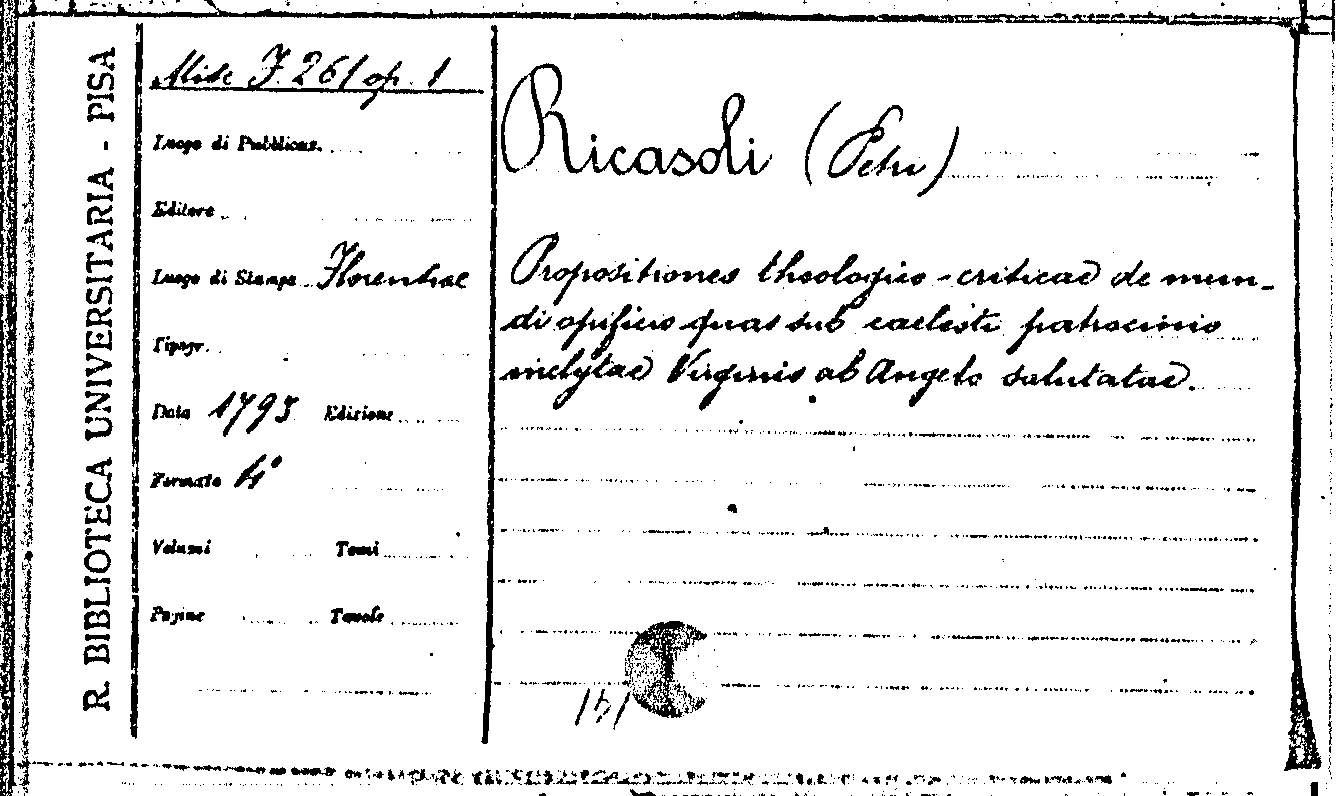 R. BIBLIOTECA UNIVERSITARIA - PISA
Misc F. 261 op. 1
Luogo di Pubblicaz.
Editore
Luogo di Stampa Florentiae
Tipogr.
Data 1793 Edizione
Formato 4°
Volumi Tomi
Pagine Tavole
Ricasoli (Petri)
Propositiones theologico-criticae de mun-
di opificio quas sub caelesti patrocinio
inclytae Virginis ab Angelo salutatae.